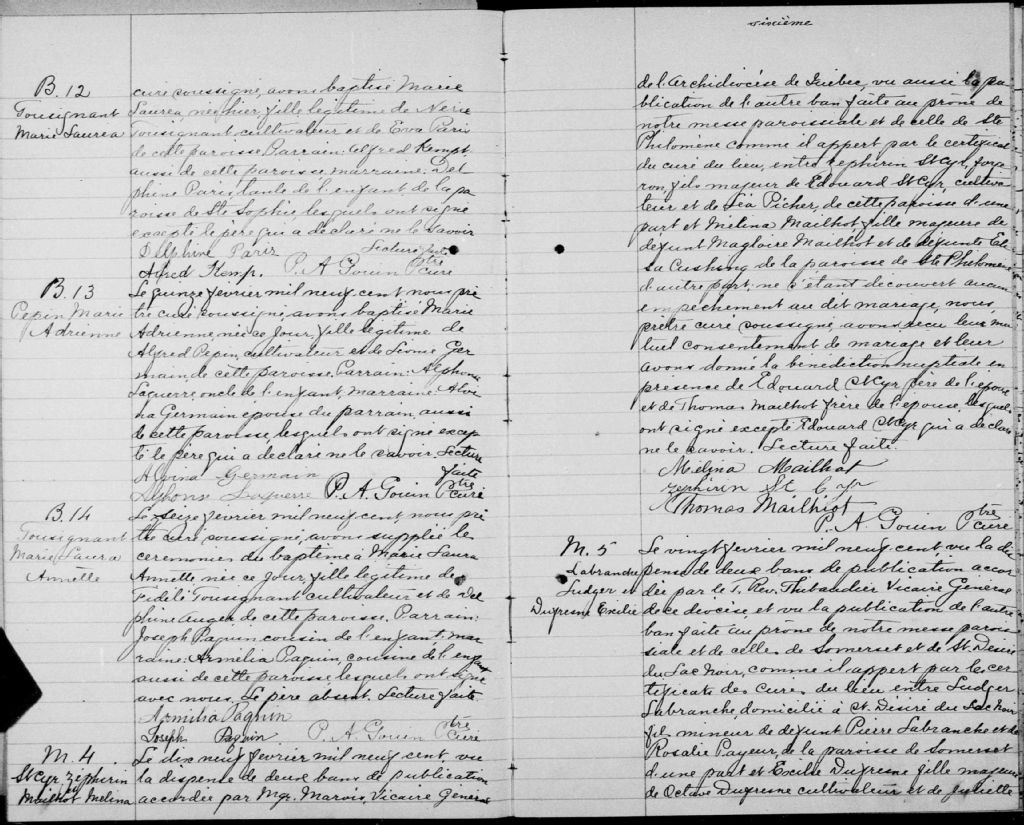 B. 12
Tousignant
Marie Laurea
curé soussigné, avons baptisé Marie
Laurea née hier, fille légitime de Nérie
Tousignant cultivateur et de Eva Paris
de cette paroisse. Parrain: Alfred Kempt,
aussi de cette paroisse, marraine: Del
phine Paris tante de l'enfant de la pa
roisse de Ste Sophie lesquels ont signé
excepté le père qui a déclaré ne le savoir
Lecture faite
Delphine Paris
Alfred Kemp. P. A Gouin Ptre curé
B. 13
Pepin Marie
Adrienne
Le quinze février mil neuf cent nous prê
tre curé soussigné, avons baptisé Marie
Adrienne, née ce jour, fille légitime de
Alfred Pepin, cultivateur et de Léonie Ger
main, de cette paroisse. Parrain: Alphonse
Laguerre, oncle de l'enfant, marraine: Alvi
na Germain épouse du parrain, aussi
de cette paroisse, lesquels ont signé excep
té le père qui a déclaré ne le savoir. Lecture
faite
Alvina Germain
Alphonse Laguerre P. A. Gouin Ptre curé
B. 14
Tousignant
Marie Laura
Annette
Le seize février mil neuf cent, nous prê
tre curé soussigné, avons supplié les
cérémonies du baptême à Marie Laura
Annette née ce jour, fille légitime de
Fidèle Tousignant cultivateur et de Del
phine Auger de cette paroisse. Parrain:
Joseph Paquin cousin de l'enfant, mar
raine: Armélia Paquin, cousine de l'enfant
aussi de cette paroisse lesquels ont signé
avec nous. Le père absent. Lecture faite
Armilia Paquin
Joseph Paquin P. A. Gouin Ptre curé
M. 4
St Cyr Zéphirin
et
Mailhot Melina
Le dix neuf février mil neuf cent, vu
la dispense de deux bans de publication
accordée par Mgr. Marois, Vicaire Général
sixième
de l'Archidiocèse de Québec, vu aussi la pu
blication de l'autre ban faite au prône de
notre messe paroissiale et de celle de Ste
Philomène comme il appert par le certificat
du curé du lieu, entre Zéphirin St Cyr, forge
ron, fils majeur de Édouard St Cyr, cultiva
teur et de Léa Picher, de cette paroisse d'une
part et Mélina Mailhot, fille majeure de
défunt Magloire Mailhot et de défunte Eli
sa Cushing de la paroisse de Ste Philomène
d'autre part; ne s'étant découvert aucun
empêchement au dit mariage, nous,
prêtre curé soussigné, avons reçu leur mu
tuel consentement de mariage et leur
avons donné la bénédiction nuptiale en
présence de Édouard St Cyr père de l'époux
et de Thomas Mailhot frère de l'épouse, lesquels
ont signé excepté Édouard St Cyr qui a déclaré
ne le savoir. Lecture faite.
Melina Mailhot
Zephirin St Cyr
Thomas Mailhiot
P. A Gouin Ptre curé
M. 5
Labranche
Ludger et
Dufresne Exilie
Le vingt février mil neuf cent vu la dis
pense de deux bans de publication accor
dée par le T. Rev. Thibaudier Vicaire Général
de ce diocèse et vu la publication de l'autre
ban faite au prône de notre messe parois
siale et de celles de Somerset et de St. Désiré
du Lac Noir, comme il appert par les cer
tificats des Curés du lieu entre Ludger
Labranche, domicilié à St. Désiré du Lac Noir
fils mineur de défunt Pierre Labranche et de
Rosalie Payeur, de la paroisse de Somerset
d'une part et Exilie Dufresne fille majeure
de Octave Dufresne cultivateur et de Juliette